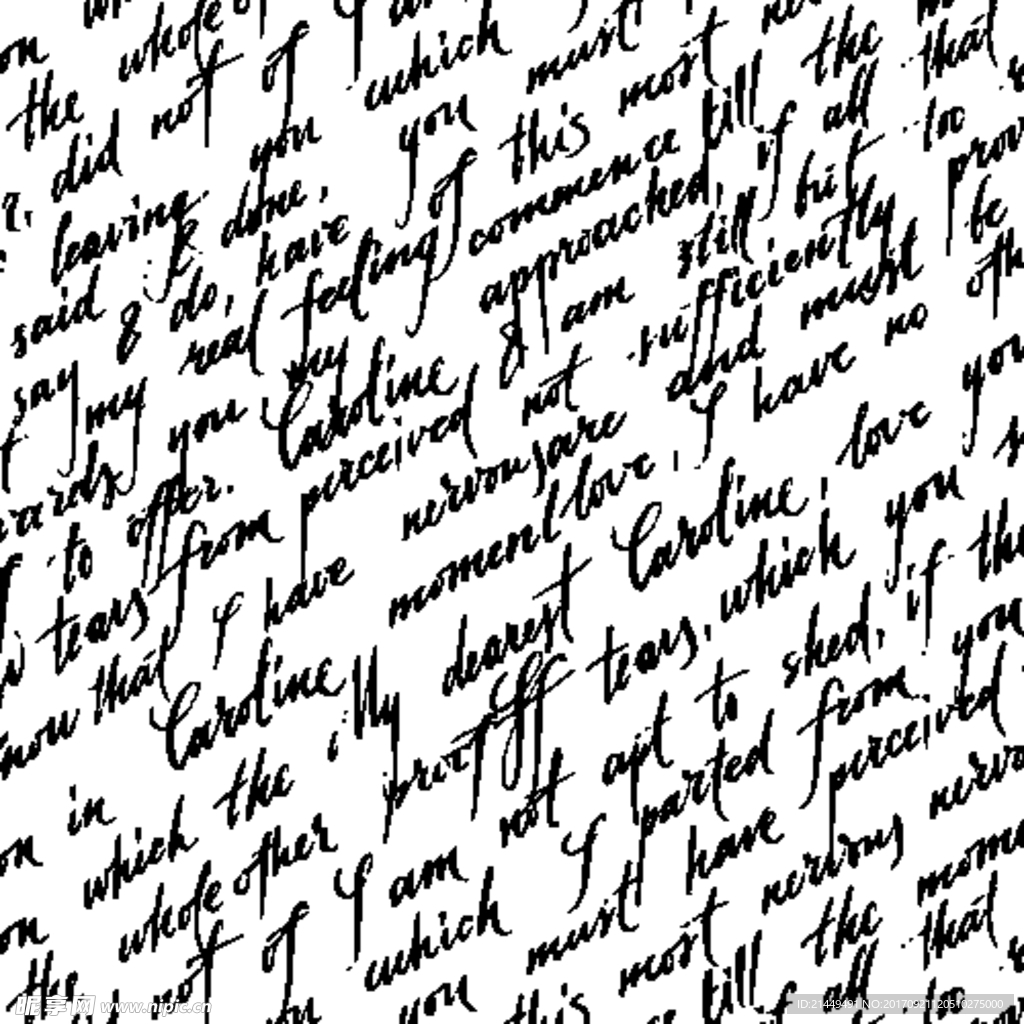 on the whole of
did not of I
leaving you which
said & done, you must
say & do, have of this most
my real feeling commence till the
you my approached, if all that
to offer. Caroline & am still but too
tears from perceived not sufficiently
that I have nervous are and must be
Caroline moment love, I have no
in the My dearest Caroline, love you
on which the proof off tears, which you
on whole other I am not apt to shed, if the
the not of which I parted from you
you must have perceived
this most nervous
till the
all that
too
昵享网 www.nipic.cn
ID:21449491 NO:20170921120510275000